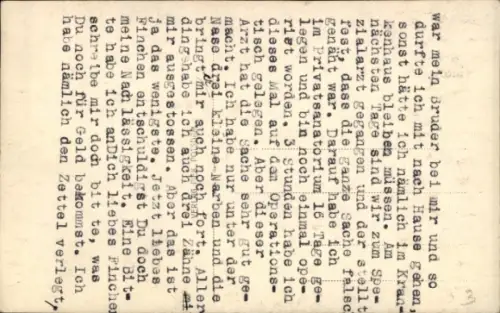 war mein Bruder bei mir und so
durfte ich mit nach Hause gehen,
sonst hätte ich nämlich im Kran-
kenhaus bleiben müssen. Am
nächsten Tage sind wir zum Spe-
zialarzt gegangen und der stellt
fest, dass die ganze Sache falsch
genäht war. Darauf habe ich
im Privatsanatorium 16 Tage ge-
legen und bin noch einmal ope-
riert worden. 3 Stunden habe ich
dieses Mal auf dem Operations-
tisch gelegen. Aber dieser
Arzt hat die Sache sehr gut ge-
macht. Ich habe nur unter der
Nase drei kleine Narben und die
bringt mir auch noch fort. Aller
dings habe ich auch drei Zähne
mir ausgestossen. Aber das ist
ja das wenigste. Jetzt liebes
Finchen entschuldigst Du doch
meine Nachlässigkeit. Eine Bit-
te habe ich an Dich liebes Finchen
schreibe mir doch bitte, was
Du noch für Geld bekommst. Ich
habe nämlich den Zettel verlegt,
3